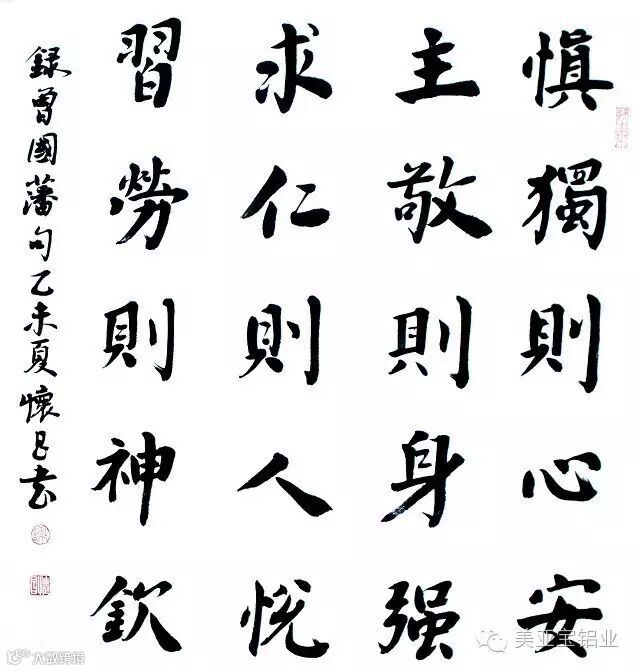 慎獨則心安
主敬則身强
求仁則人悅
習勞則神欽
録曾國藩句乙未夏懷吕书
美亚宝铝业
大数跨境